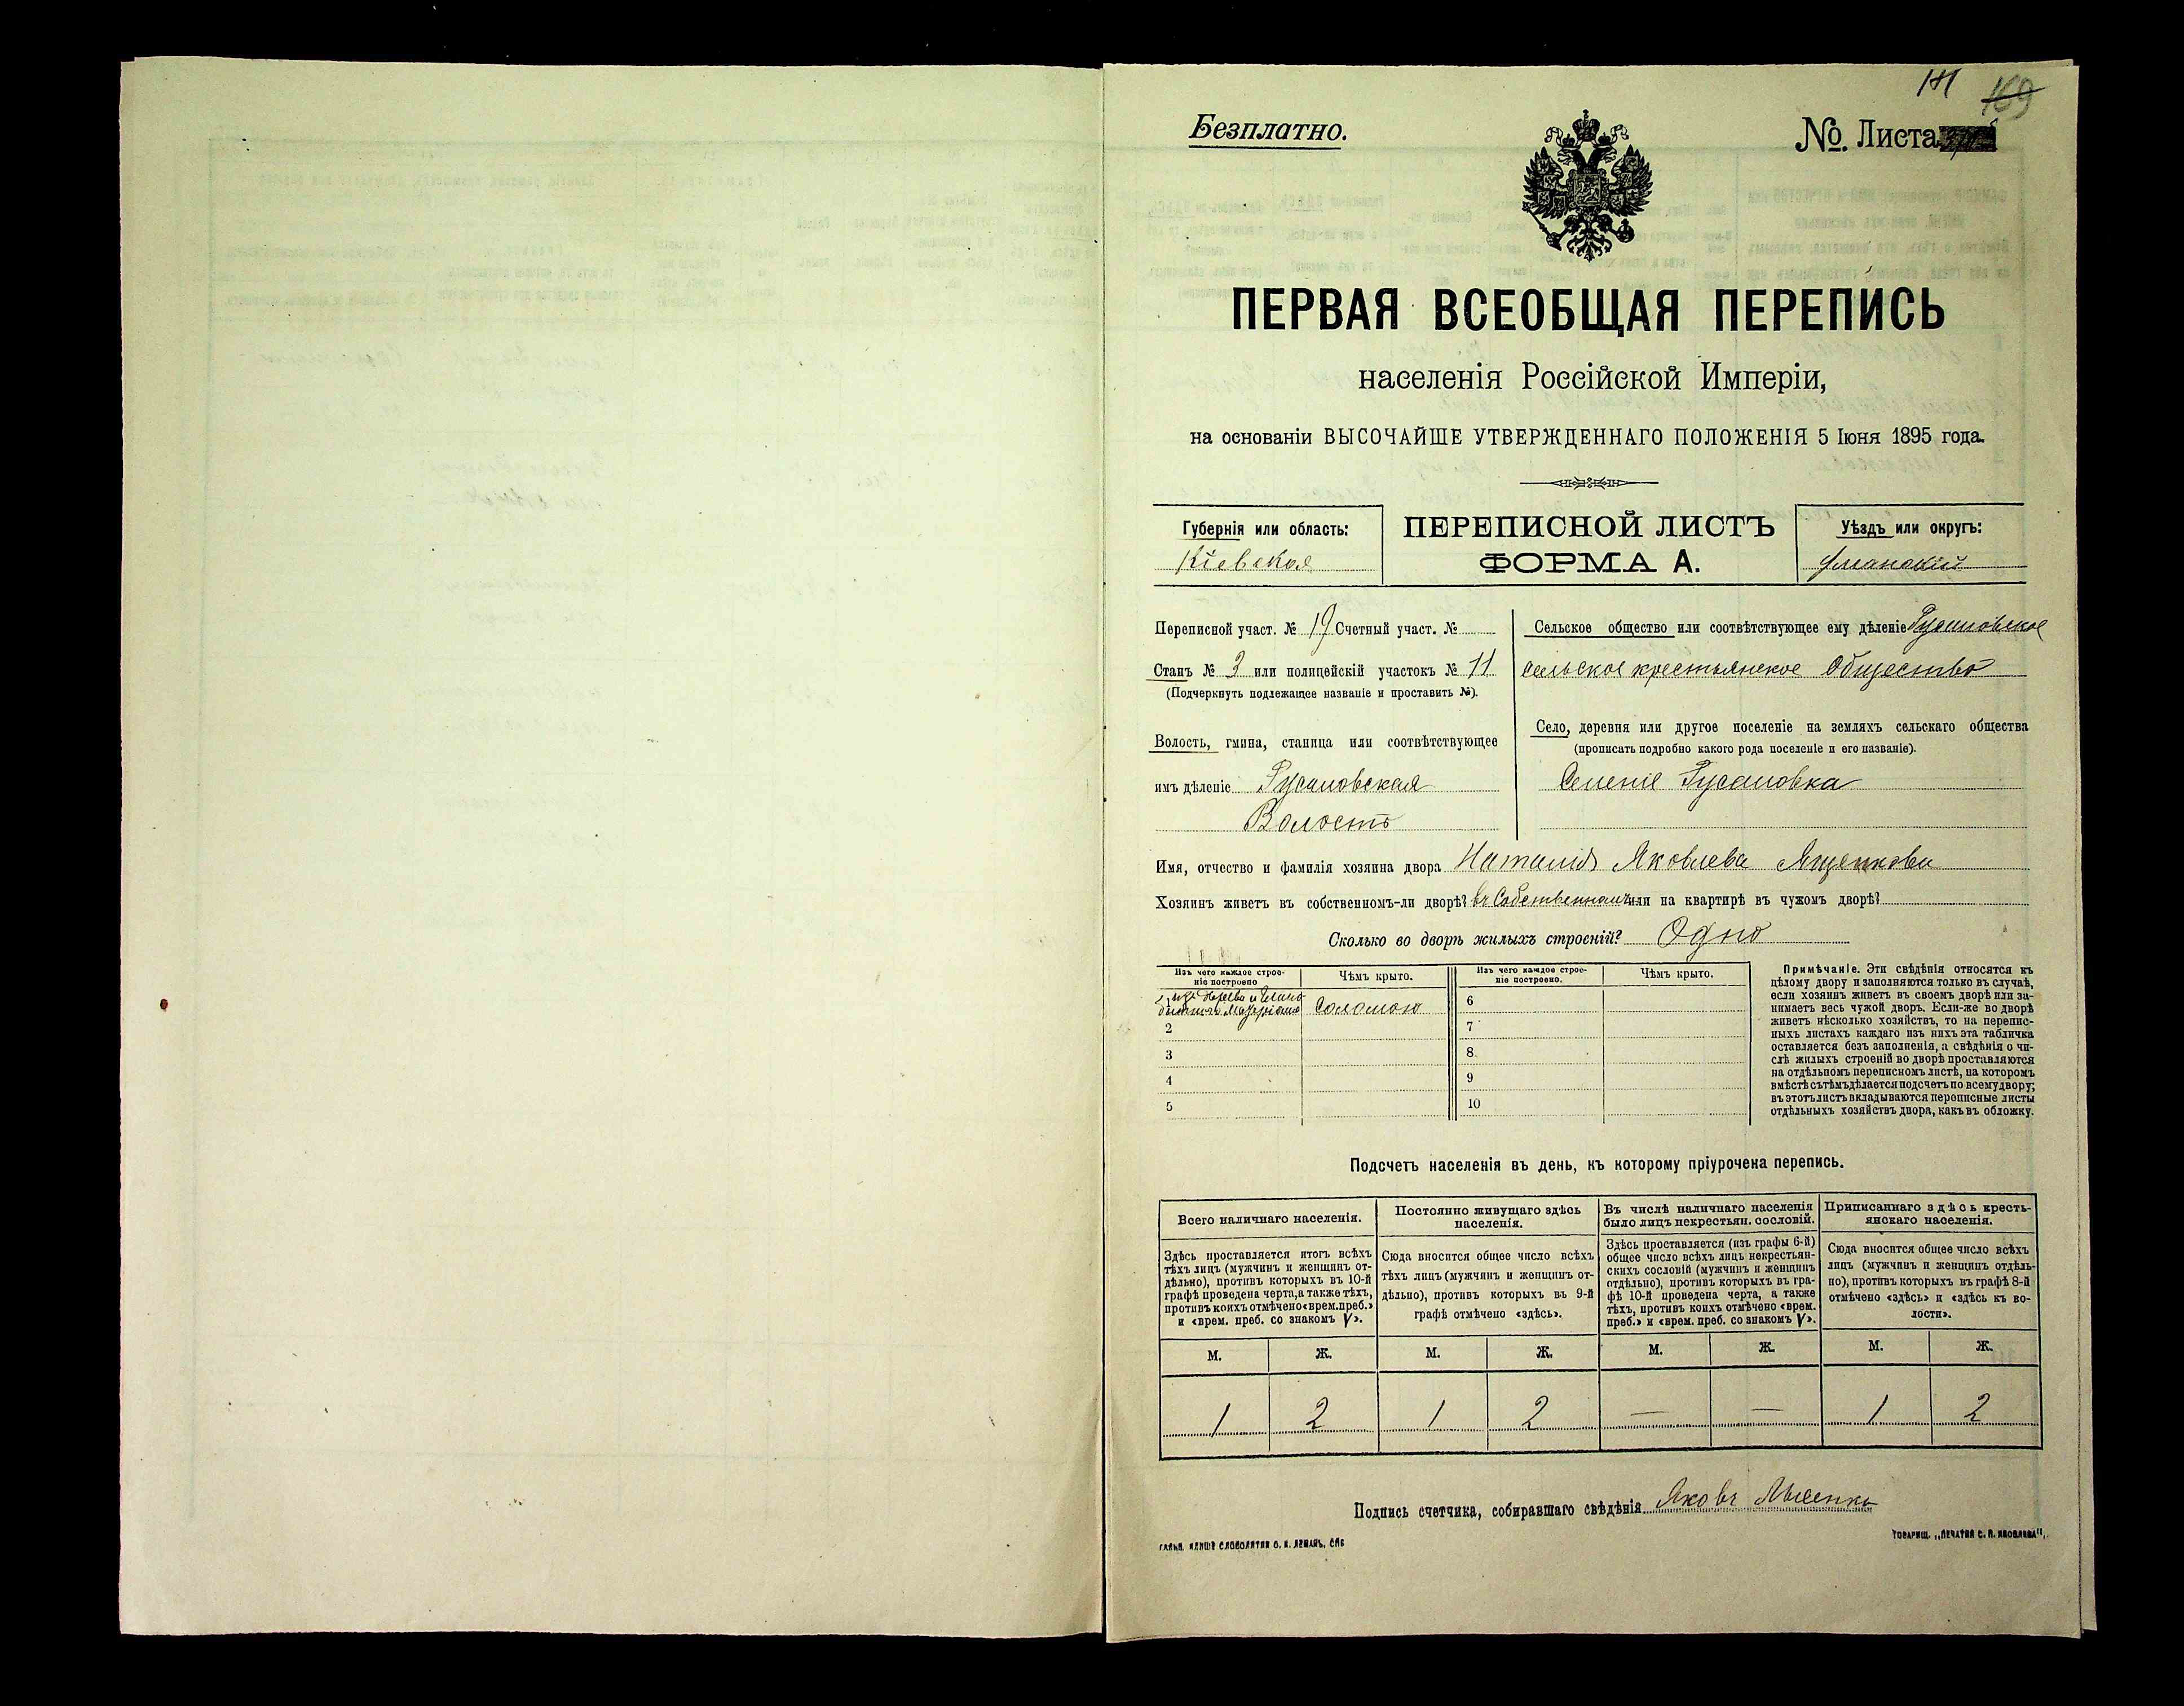 169
Безплатно.
№. Листа
ПЕРВАЯ ВСЕОБЩАЯ ПЕРЕПИСЬ
населенія Россійской Имперіи,
на основаніи ВЫСОЧАЙШЕ УТВЕРЖДЕННАГО ПОЛОЖЕНІЯ 5 Іюня 1895 года.
Губернія или область:
Кіевская
ПЕРЕПИСНОЙ ЛИСТЪ
ФОРМА А.
Уѣздъ или округъ:
Уманскій
Переписной участ. № 19 Счетный участ. №
Станъ № 3 или полицейскій участокъ № 11
(Подчеркнуть подлежащее названіе и проставить №).
Волость, гмина, станица или соотвѣтствующее
имъ дѣленіе
Волость
Сельское общество или соотвѣтствующее ему дѣленіе
сельское крестьянское Общество
Село, деревня или другое поселеніе на земляхъ сельскаго общества
(прописать подробно какого рода поселеніе и его названіе).
Имя, отчество и фамилія хозяина двора Наталія Яковлева Ященкова
Хозяинъ живетъ въ собственномъ-ли дворѣ? въ Собственномъ или на квартирѣ въ чужомъ дворѣ?
Сколько во дворѣ жилыхъ строеній? Одно
Изъ чего каждое строе-
ніе построено
Чѣмъ крыто.
Изъ чего каждое строе-
ніе построено.
Чѣмъ крыто.
изъ дерева и
Соломою
2
3
4
5
6
7
8
9
10
Примѣчаніе. Эти свѣдѣнія относятся къ
цѣлому двору и заполняются только въ случаѣ,
если хозяинъ живетъ въ своемъ дворѣ или за-
нимаетъ весь чужой дворъ. Если-же во дворѣ
живетъ нѣсколько хозяйствъ, то на перепис-
ныхъ листахъ каждаго изъ нихъ эта табличка
оставляется безъ заполненія, а свѣдѣнія о чи-
слѣ жилыхъ строеній во дворѣ проставляются
на отдѣльномъ переписномъ листѣ, на которомъ
вмѣстѣ съ тѣмъ дѣлается подсчетъ по всему двору;
въ этотъ листъ вкладываются переписные листы
отдѣльныхъ хозяйствъ двора, какъ въ обложку.
Подсчетъ населенія въ день, къ которому пріурочена перепись.
Всего наличнаго населенія.
Здѣсь проставляется итогъ всѣхъ
тѣхъ лицъ (мужчинъ и женщинъ от-
дѣльно), противъ которыхъ въ 10-й
графѣ проведена черта, а также тѣхъ,
противъ коихъ отмѣчено «врем. преб.»
и «врем. преб. со знакомъ V».
Постоянно живущаго здѣсь
населенія.
Сюда вносится общее число всѣхъ
тѣхъ лицъ (мужчинъ и женщинъ от-
дѣльно), противъ которыхъ въ 9-й
графѣ отмѣчено «здѣсь».
Въ числѣ наличнаго населенія
было лицъ некрестьян. сословій.
Здѣсь проставляется (изъ графы 6-й)
общее число всѣхъ лицъ некрестьян-
скихъ сословій (мужчинъ и женщинъ
отдѣльно), противъ которыхъ въ гра-
фѣ 10-й проведена черта, а также
тѣхъ, противъ коихъ отмѣчено «врем.
преб.» и «врем. преб. со знакомъ V».
Приписаннаго здѣсь кресть-
янскаго населенія.
Сюда вносится общее число всѣхъ
лицъ (мужчинъ и женщинъ отдѣль-
но), противъ которыхъ въ графѣ 8-й
отмѣчено «здѣсь» и «здѣсь къ во-
лости».
М. Ж. М. Ж. М. Ж. М. Ж.
1 2 1 2 — — 1 2
Подпись счетчика, собиравшаго свѣдѣнія Яковъ
ТОВАРИЩ. „ПЕЧАТНЯ С. П. ЯКОВЛЕВА".